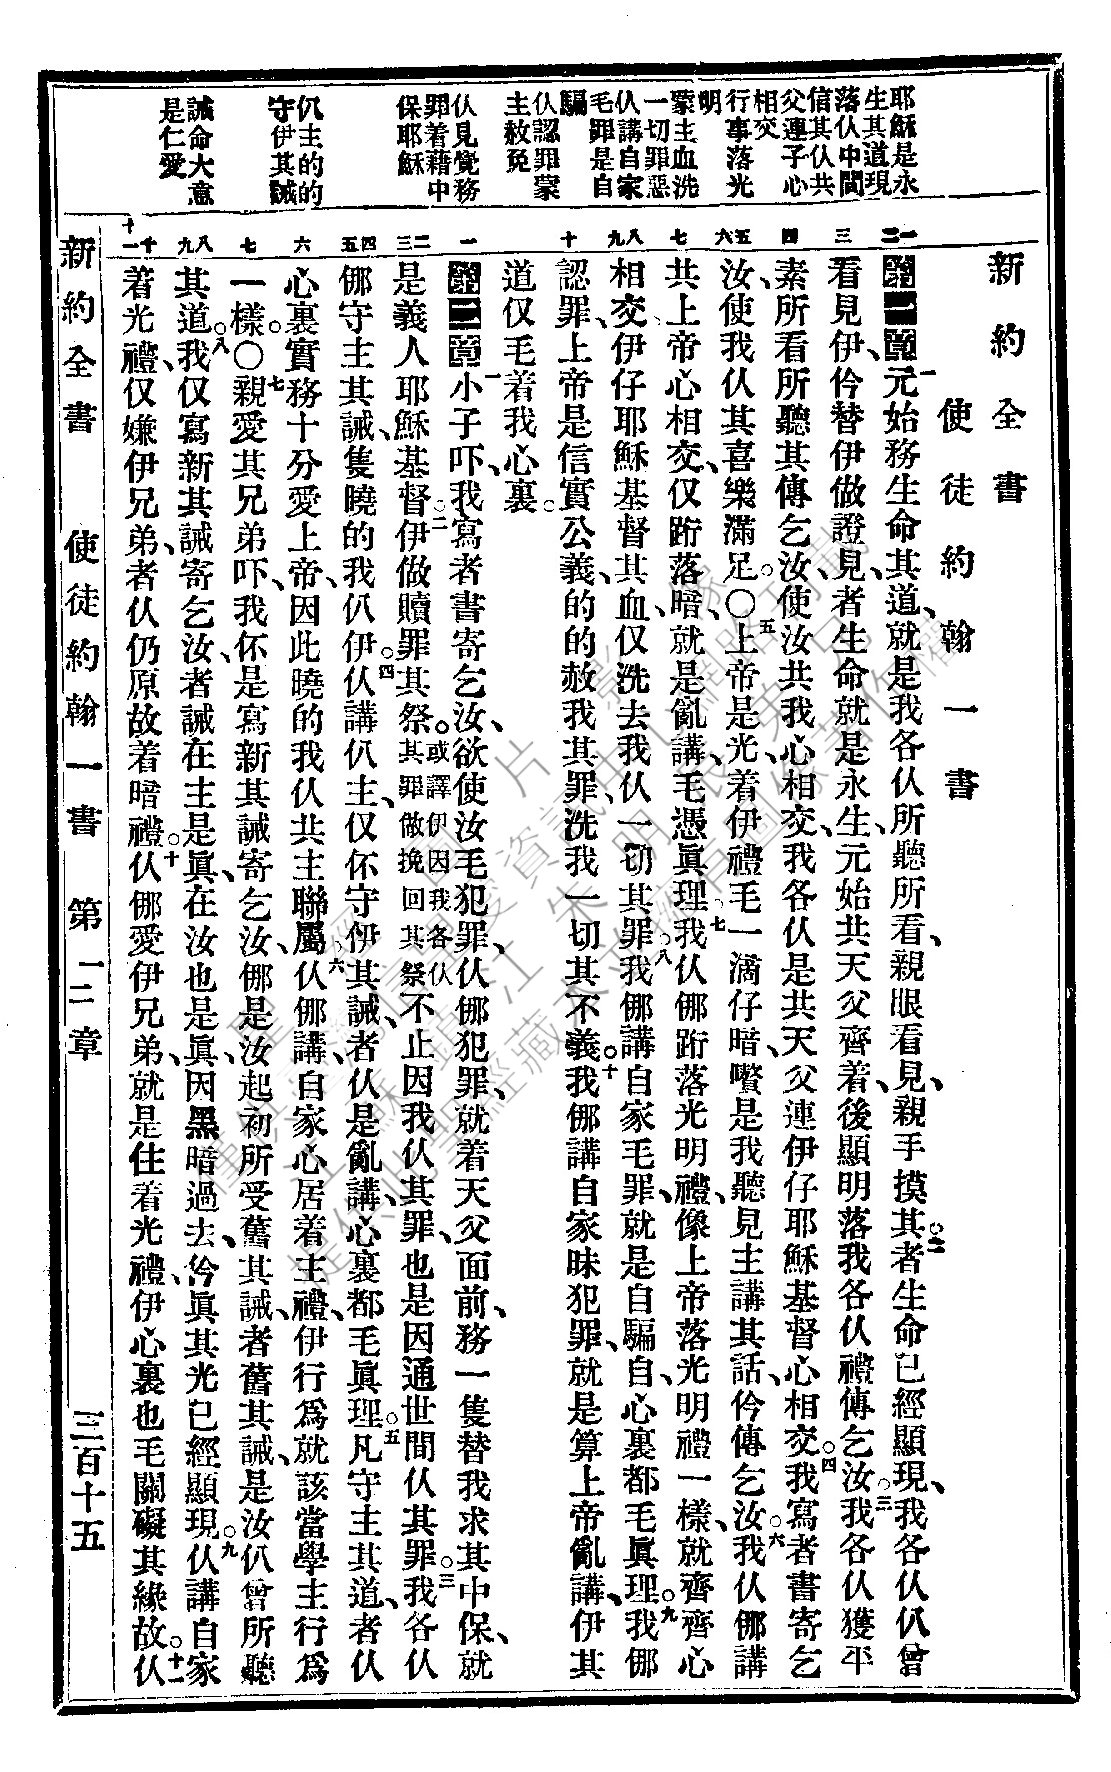 新約全書
使徒約翰一書
第一章元始務生命其道、就是我各仈所聽所看、親眼看見、親手摸其。者生命已經顯現、我各仈仈曾
看見伊、伶替伊做證見、者生命就是永生、元始共天父齊着、後顯明落我各仈禮傳乞汝。我各仈獲平
素所看所聽其傳乞汝、使汝共我心相交、我各仈是共天父連伊仔耶穌基督心相交。我寫者書寄乞
汝、使我仈其喜樂滿足。〇上帝是光、着伊禮毛一滴仔暗、嚽是我聽見主講其話、伶傳乞汝。我仈倻講
共上帝心相交、仅跀落暗、就是亂講、毛憑眞理。我仈倻跀落光明禮、像上帝落光明禮一樣、就齊齊心
相交、伊仔耶穌基督其血、仅洗去我仈一切其罪。我倻講自家毛罪、就是自騙自、心裏都毛眞理。我倻
認罪、上帝是信實公義、的的赦我其罪、洗我一切其不義。我倻講自家昧犯罪、就是算上帝亂講、伊其
道仅毛着我心裏。
第二章小子吓、我寫者書寄乞汝、欲使汝毛犯罪、仈倻犯罪、就着天父面前、務一隻替我求其中保、就
是義人耶穌基督。伊做贖罪其祭。或譯伊因我各仈其罪做挽回其祭不止因我仈其罪、也是因通世間仈其罪。我各仈
倻守主其誡、隻曉的我仈伊。仈講仈主、仅伓守伊其誡、者仈是亂講、心裏都毛眞理。凡守主其道、者仈
心裏實務十分愛上帝、因此曉的我仈共主聯屬。仈倻講自家心居着主禮、伊行爲就該當學主行爲
一樣。〇親愛其兄弟吓、我伓是寫新其誡寄乞汝、倻是汝起初所受舊其誡、者舊其誡、是汝仈曾所聽
其道。我仅寫新其誡寄乞汝、者誡在主是眞、在汝也是眞、因黑暗過去、伶眞其光已經顯現。仈講自家
着光禮、仅嫌伊兄弟、者仈仍原故着暗禮。仈倻愛伊兄弟、就是住着光禮、伊心裏也毛關礙其緣故。仈
耶穌是永
生其道現
落仈中間
信其仈共
父連子心
相交
行事落光
明
蒙主血洗
一切罪惡
仈講自家
毛罪是自
騙
仈認罪蒙
主赦免
仈見覺務
罪着藉中
保耶穌
仈主的的
守伊其誡
誡命大意
是仁愛
新約全書 使徒約翰一書 第一二章 三百十五